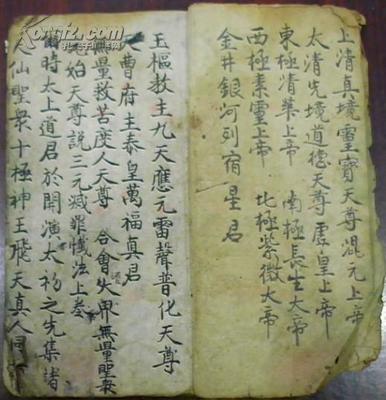 上清真境靈寶天尊混元上帝
太清先境道德天尊虛皇上帝
東極清華上帝 南極長生大帝
西極素靈上帝 北極紫微大帝
金井銀河列宿星君
玉樞教主九天應元雷聲普化天尊
天曹府主泰皇萬福真君
無量救苦度人天尊 合會 無量聖衆
元始天尊說三元滅罪懺法上卷
爾時太上道君於開演太初之先集諸
仙聖衆十極神王飛天真人同